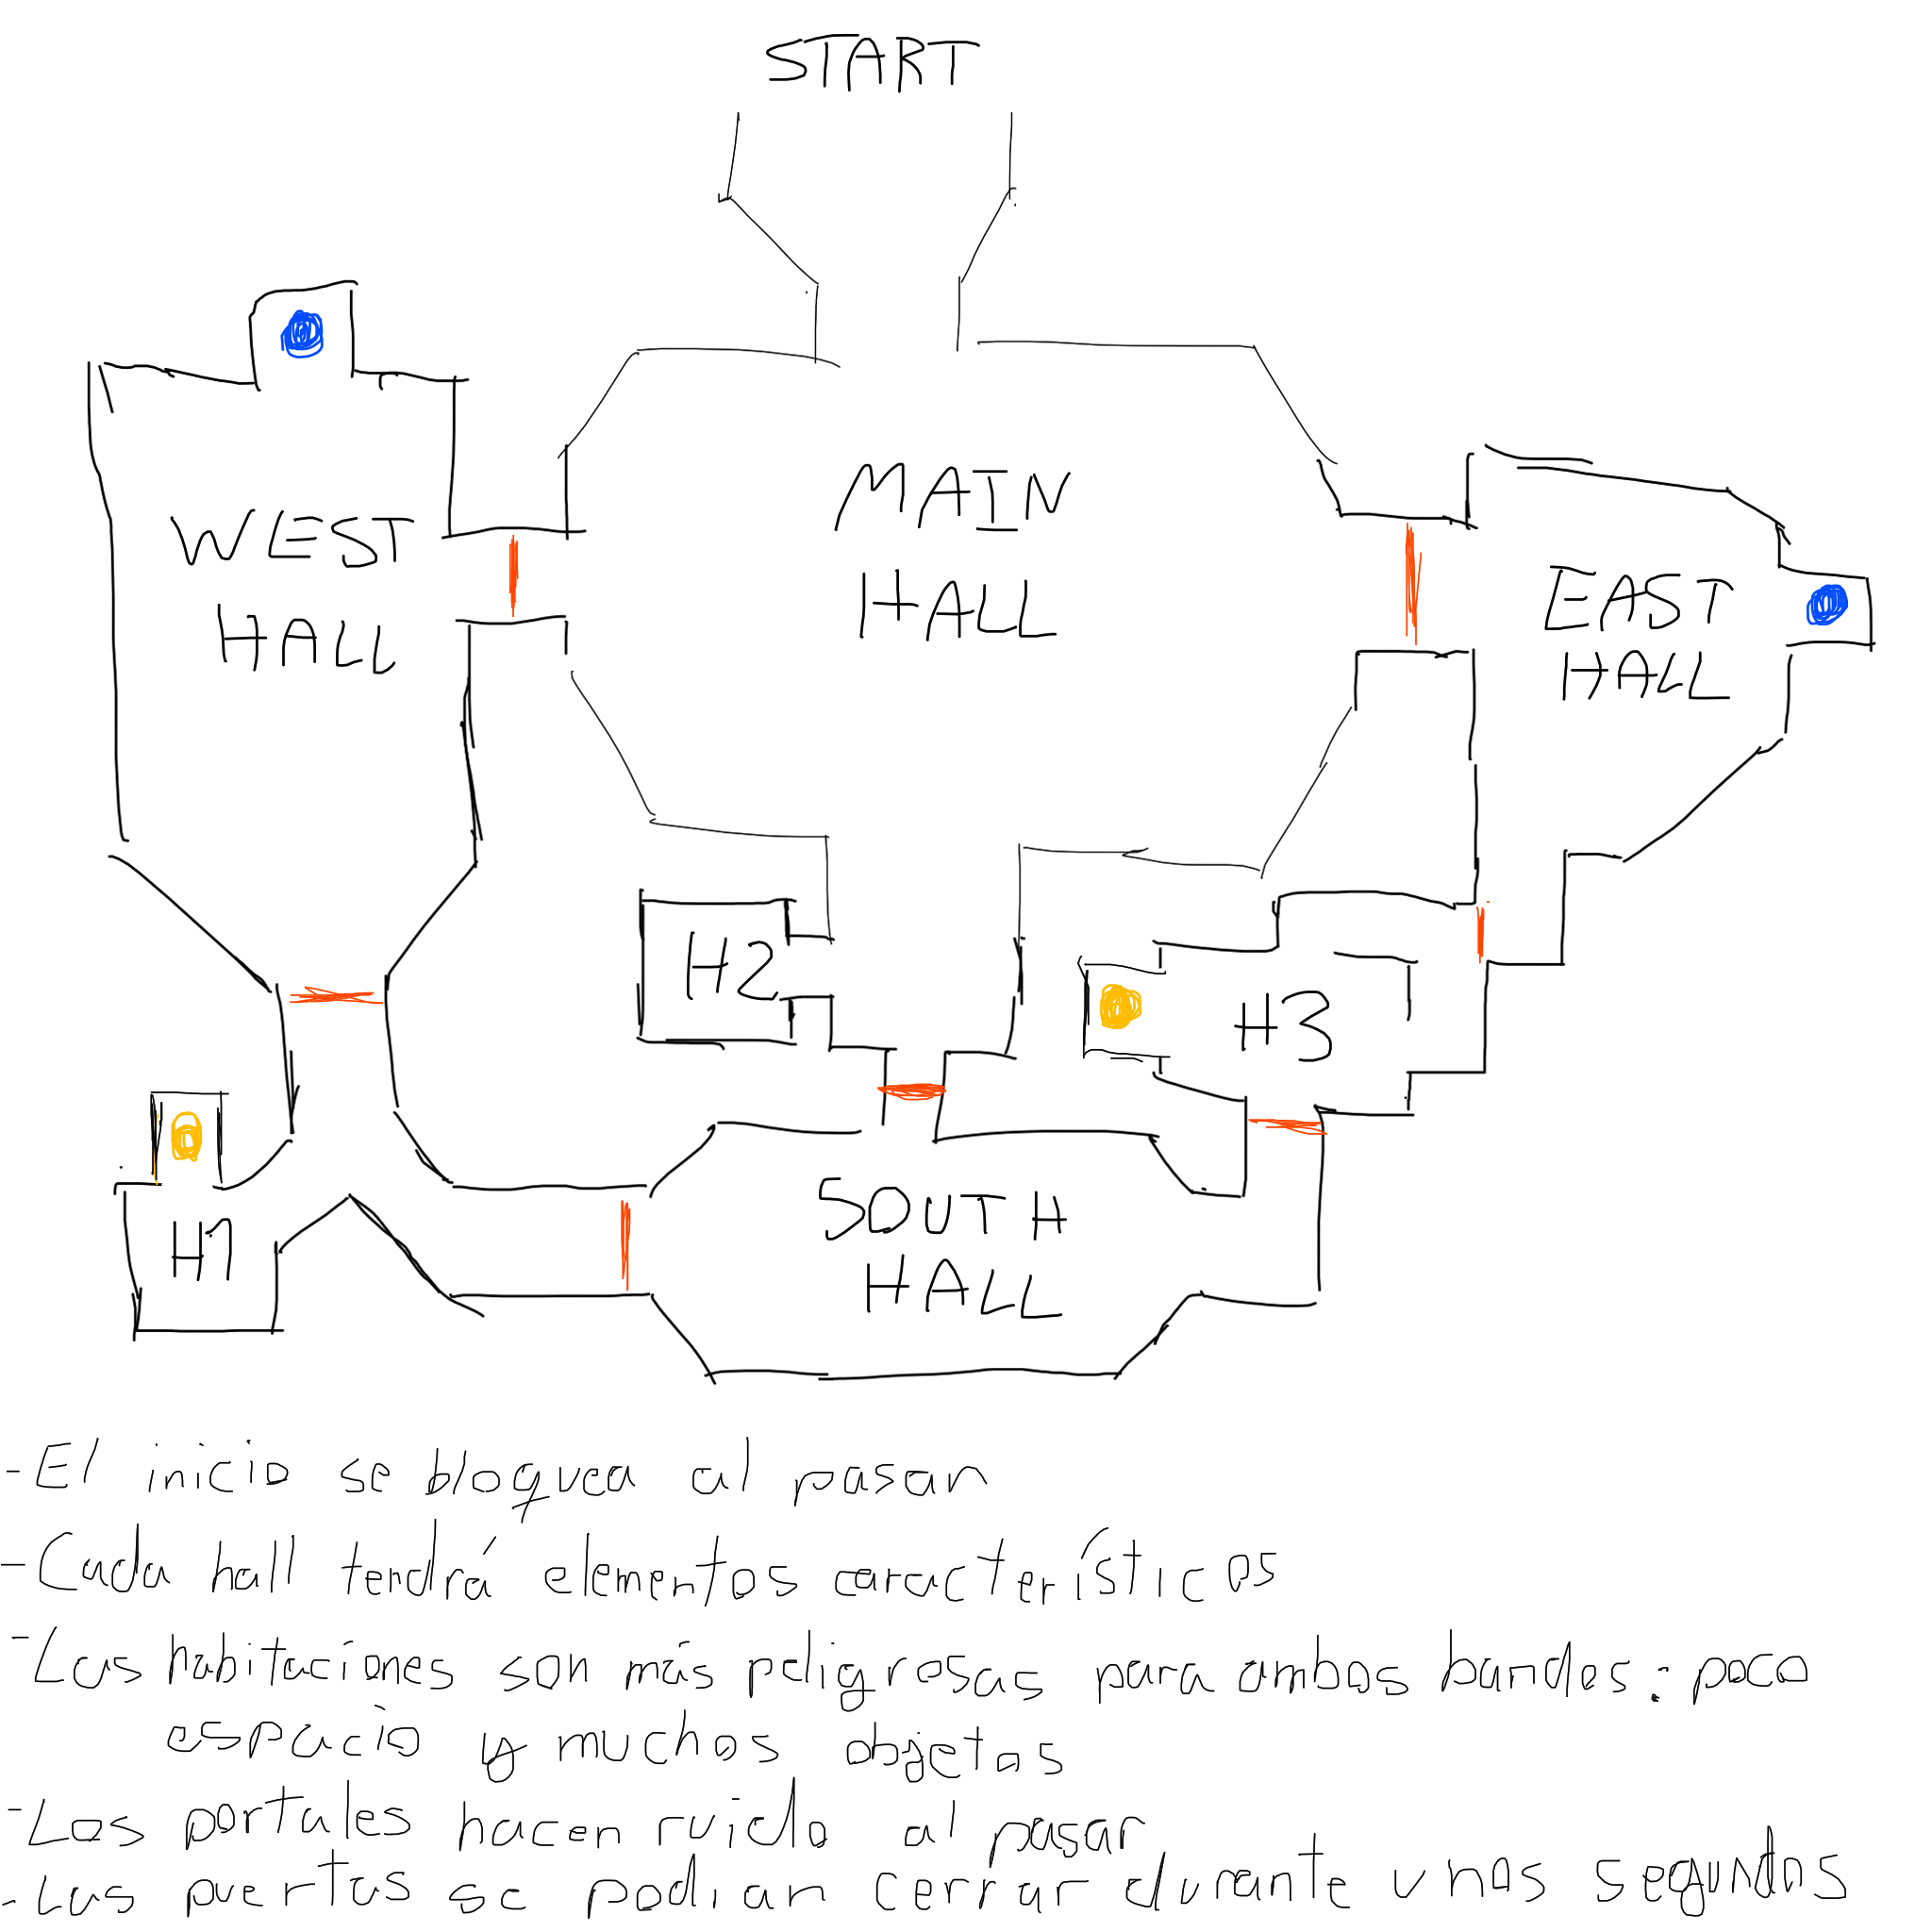 START
MAIN
HALL
WEST
HALL
EAST
HALL
H2
H3
H1
SOUTH
HALL
-El inicio se bloquea al pasar
-Cada hall tendrá elementos característicos
-Las habitaciones son más peligrosas para ambos bandos: poco
espacio y muchos objetos
-Los portales hacen ruido al pasar
-Las puertas se podian cerrar durante unos segundos